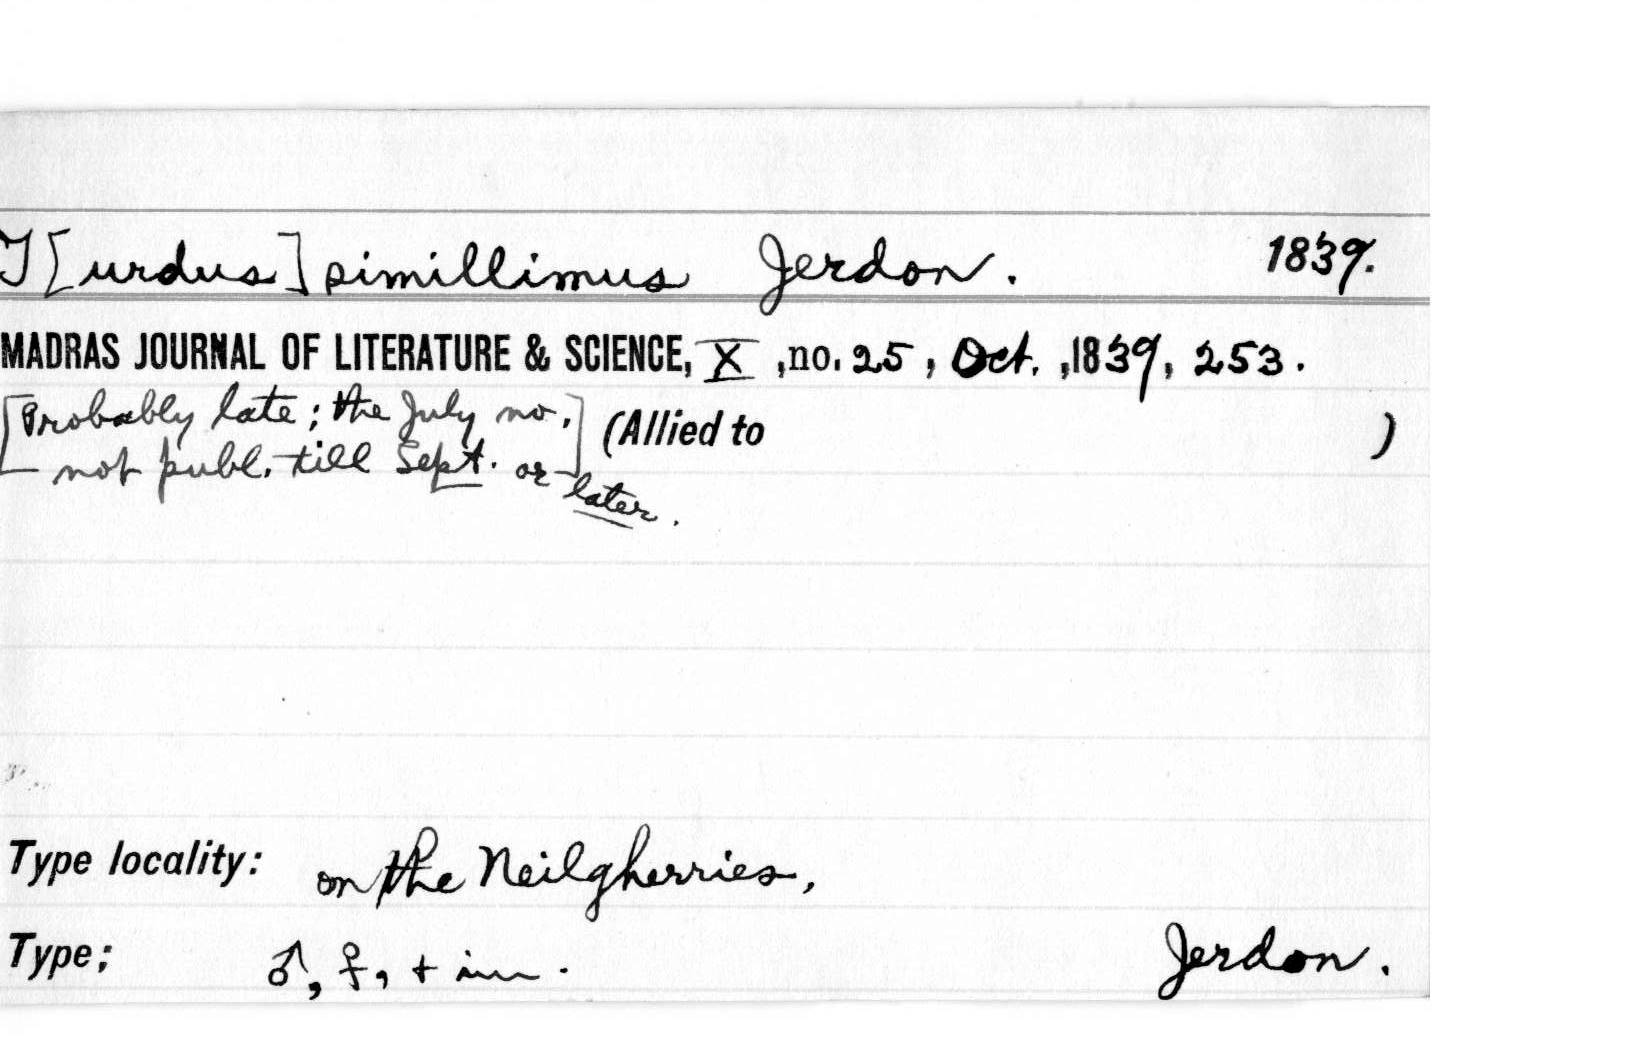 T[urdus] simillimus Jerdon. 1839.
MADRAS JOURNAL OF LITERATURE & SCIENCE, X, no. 25, Oct., 1839, 253.
[Probably late; the July no. (Allied to )
not publ. till Sept. or later.]
Type locality: on the Neilgherries,
Type; ♂, ♀, + im. Jerdon.